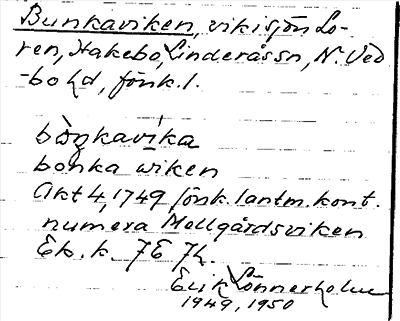 Bunkaviken, vik i sjön Lo-
ren, Hakebo, Linderås sn, N. Ved
-bo hd, Jönk. l.
bo̊ŋkavika
bonka wiken
Akt 4, 1749 Jönk. lantm. kont.
numera Mellgårdsviken
Ek. k. 7E 7h.
Erik Lönnerholm
1949, 1950